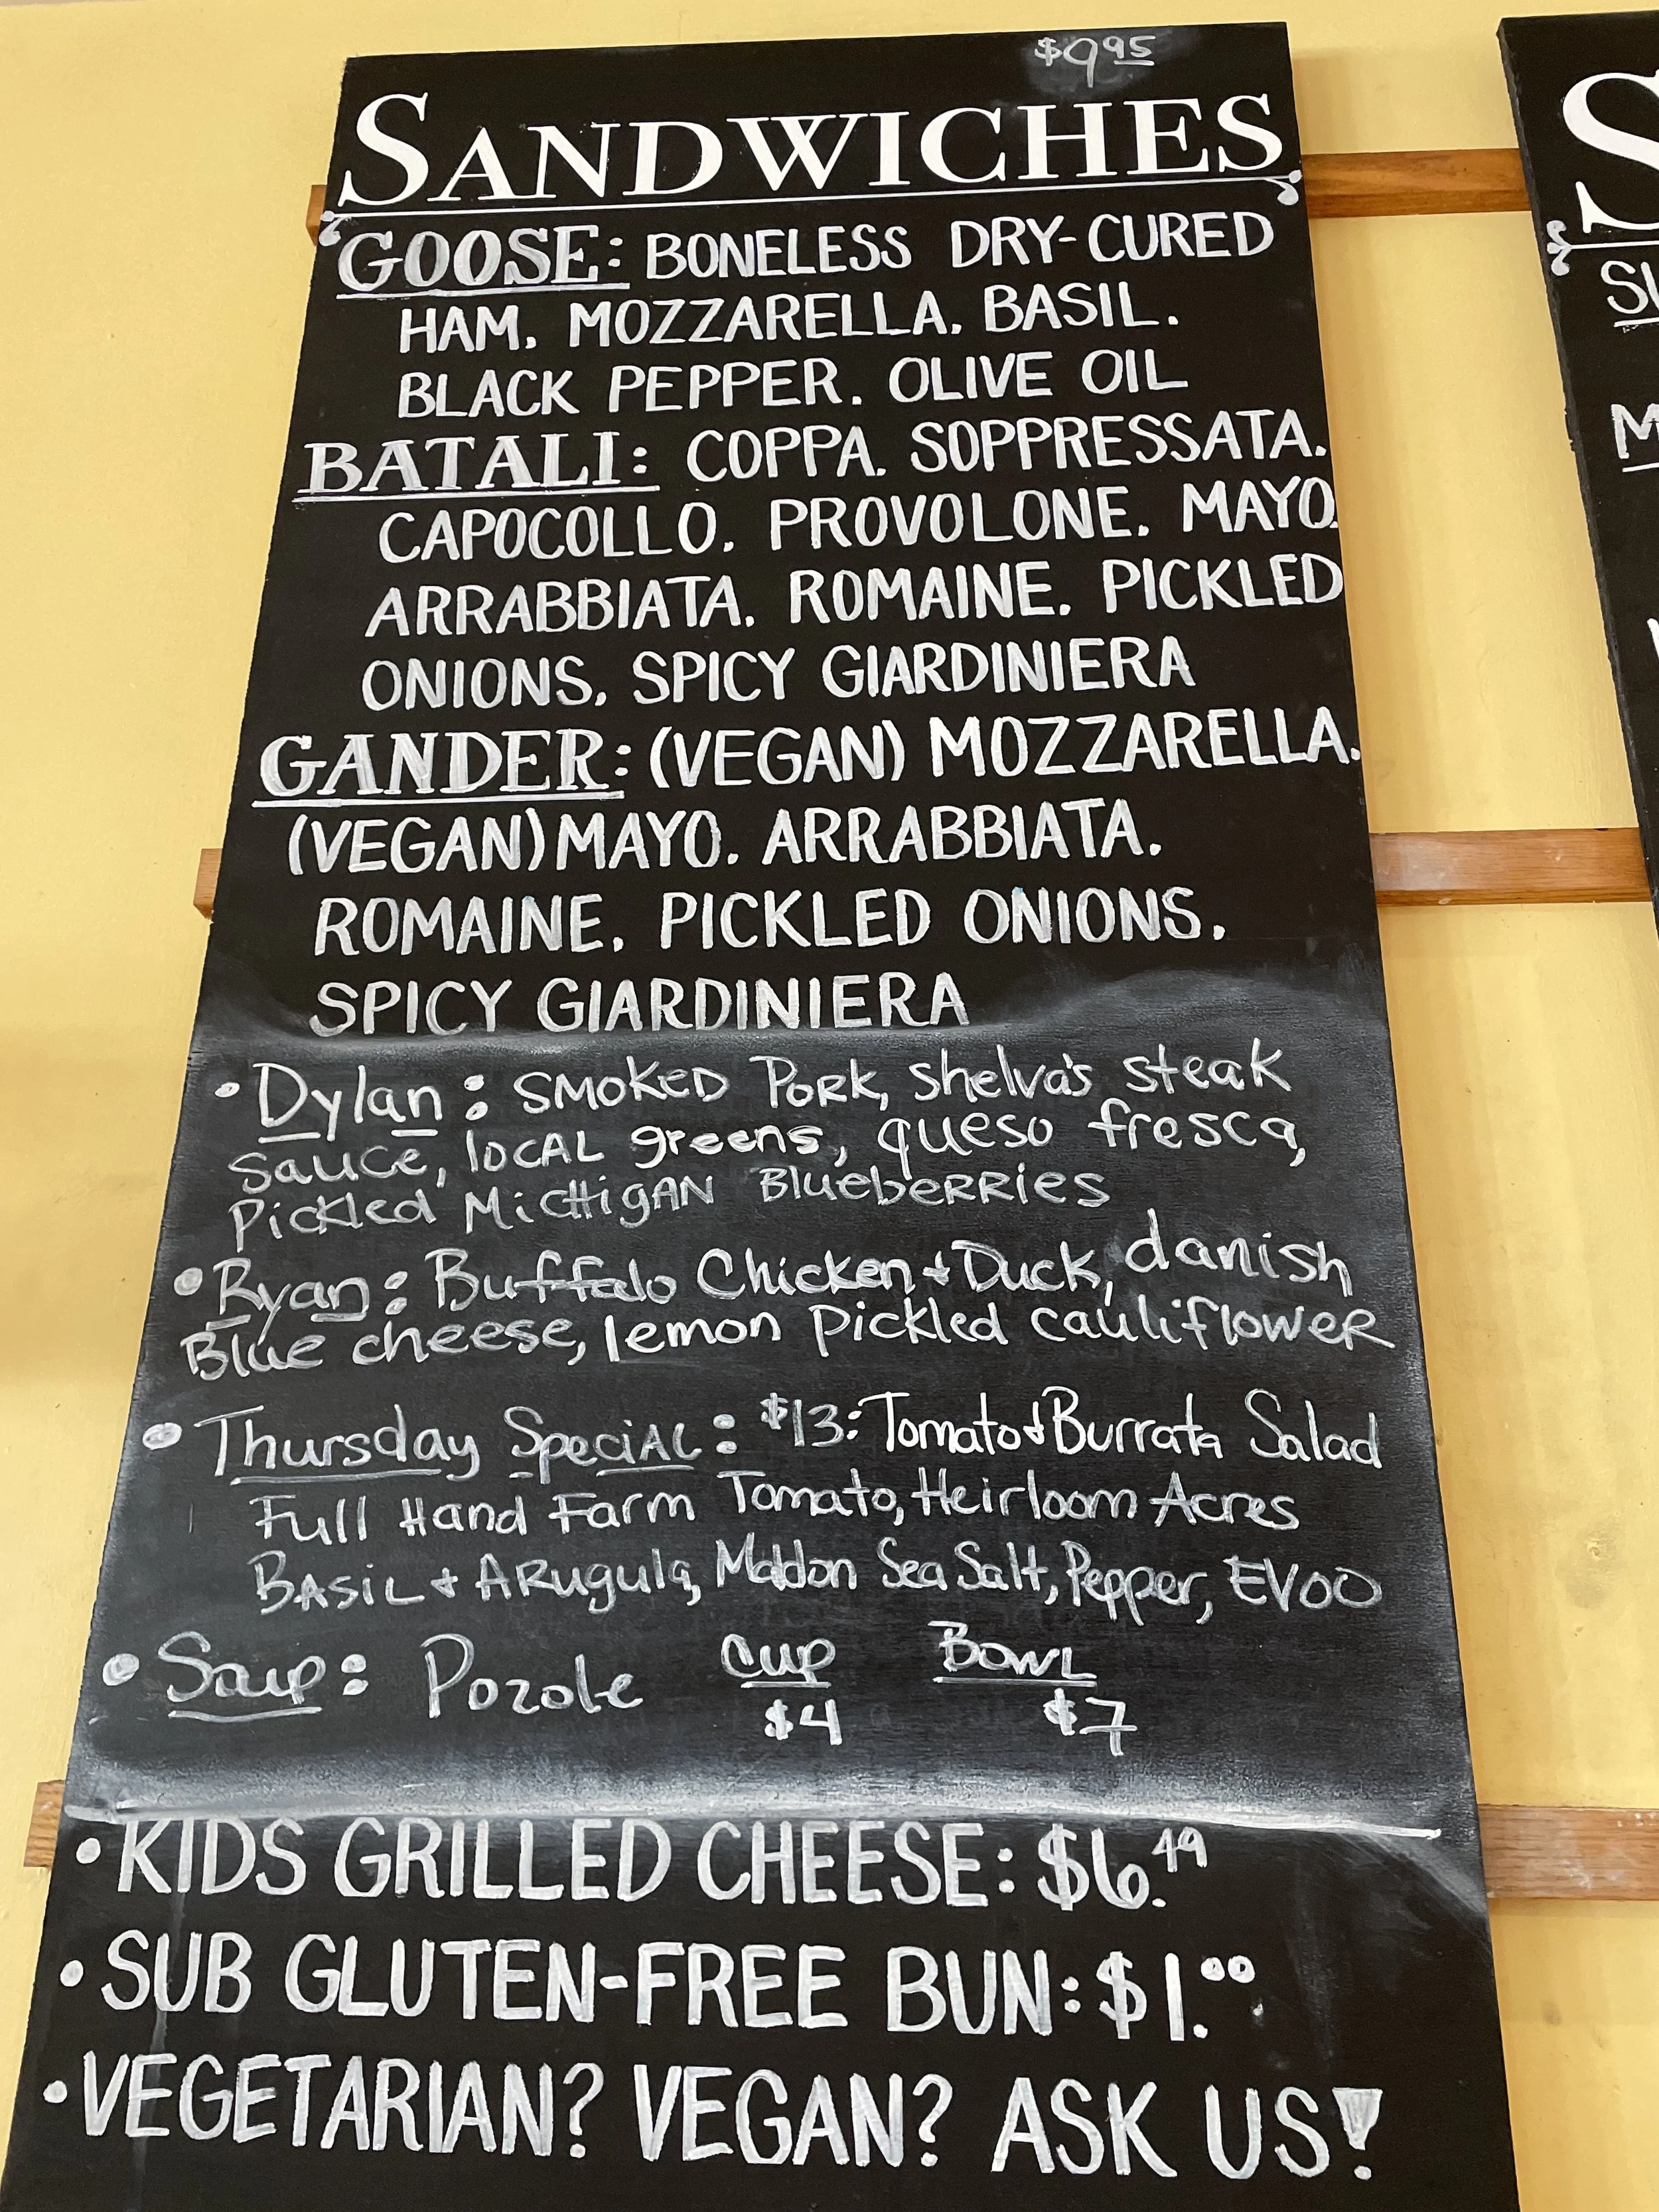 $9.95
SANDWICHES
GOOSE: BONELESS DRY-CURED
HAM. MOZZARELLA. BASIL.
BLACK PEPPER. OLIVE OIL
BATALI: COPPA. SOPPRESSATA.
CAPOCOLLO. PROVOLONE. MAYO.
ARRABBIATA. ROMAINE. PICKLED
ONIONS. SPICY GIARDINIERA
GANDER: (VEGAN) MOZZARELLA.
(VEGAN) MAYO. ARRABBIATA.
ROMAINE. PICKLED ONIONS.
SPICY GIARDINIERA
• Dylan: SMOKED PORK, Shelva's steak
Sauce, local greens, queso fresca,
Pickled Michigan Blueberries
• Ryan: Buffalo Chicken + Duck, danish
Blue cheese, lemon pickled cauliflower
• Thursday Special: $13: Tomato & Burrata Salad
Full Hand Farm Tomato, Heirloom Acres
Basil + Arugula, Maldon Sea Salt, Pepper, EVOO
• Soup: Pozole Cup Bowl
$4 $7
• KIDS GRILLED CHEESE: $6.49
• SUB GLUTEN-FREE BUN: $1.00
• VEGETARIAN? VEGAN? ASK US!